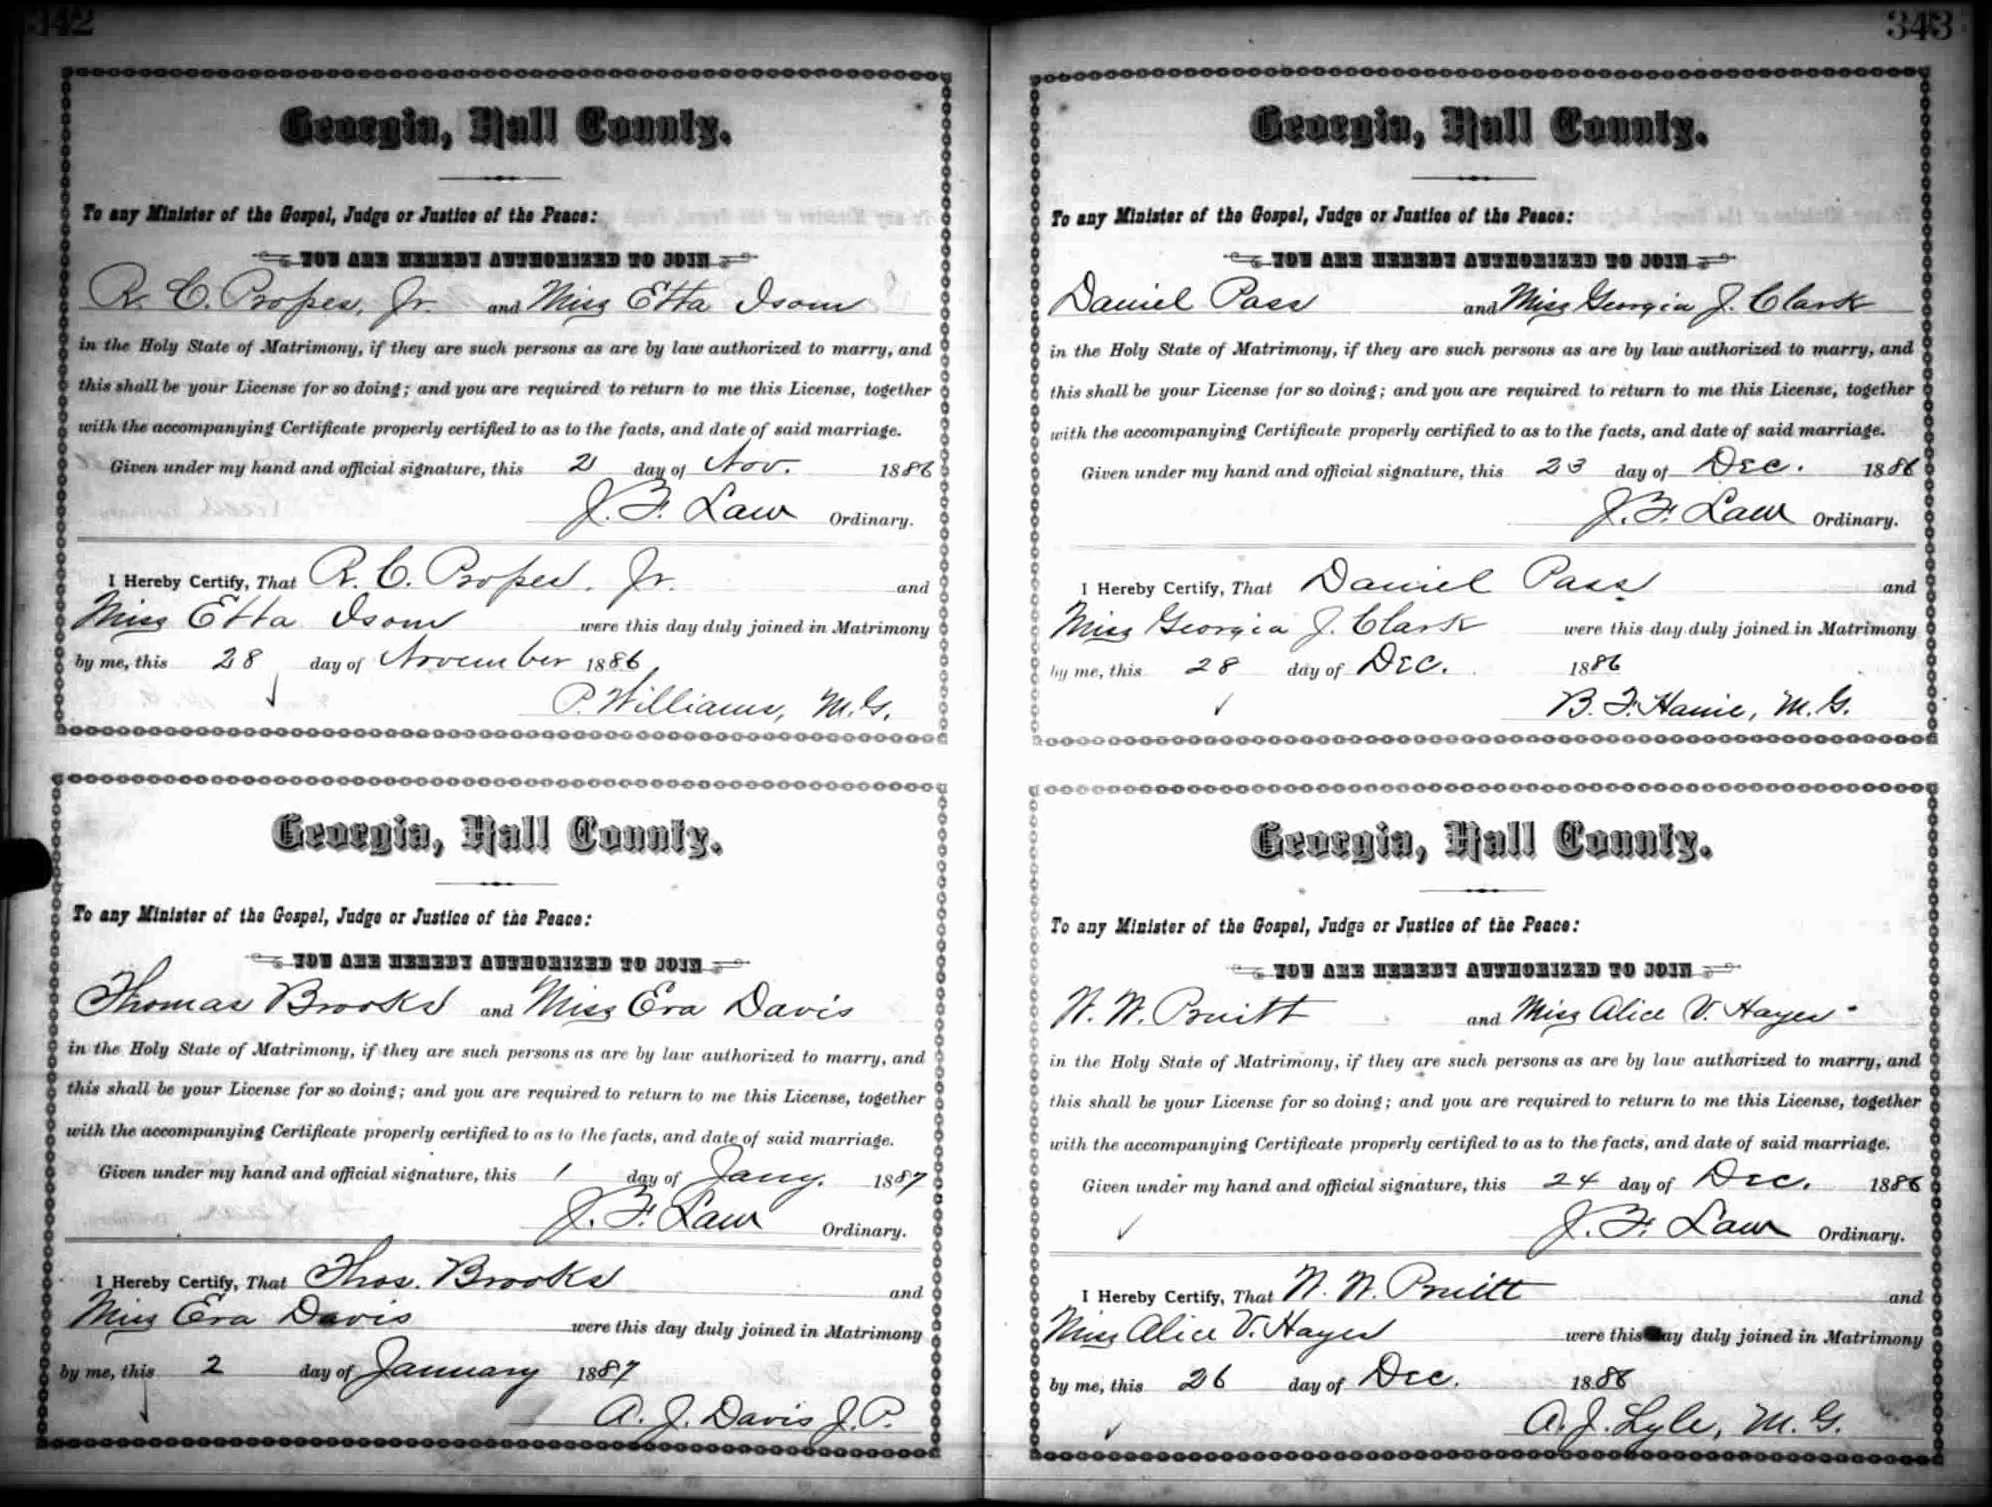 342
Georgia, Hall County.
To any Minister of the Gospel, Judge or Justice of the Peace:
YOU ARE HEREBY AUTHORIZED TO JOIN
R. C. Propes, Jr. and Miss Etta Isom
in the Holy State of Matrimony, if they are such persons as are by law authorized to marry, and
this shall be your License for so doing; and you are required to return to me this License, together
with the accompanying Certificate properly certified to as to the facts, and date of said marriage.
Given under my hand and official signature, this 21 day of Nov. 1886
J. F. Law Ordinary.
I Hereby Certify, That R. C. Propes, Jr. and
Miss Etta Isom were this day duly joined in Matrimony
by me, this 28 day of November 1886
P. Williams, M.G.
Georgia, Hall County.
To any Minister of the Gospel, Judge or Justice of the Peace:
YOU ARE HEREBY AUTHORIZED TO JOIN
Thomas Brooks and Miss Era Davis
in the Holy State of Matrimony, if they are such persons as are by law authorized to marry, and
this shall be your License for so doing; and you are required to return to me this License, together
with the accompanying Certificate properly certified to as to the facts, and date of said marriage.
Given under my hand and official signature, this 1 day of Jany. 1887
J. F. Law Ordinary.
I Hereby Certify, That Thos. Brooks and
Miss Era Davis were this day duly joined in Matrimony
by me, this 2 day of January 1887
A. J. Davis J.P.
343
Georgia, Hall County.
To any Minister of the Gospel, Judge or Justice of the Peace:
YOU ARE HEREBY AUTHORIZED TO JOIN
Daniel Pass and Miss Georgia J. Clark
in the Holy State of Matrimony, if they are such persons as are by law authorized to marry, and
this shall be your License for so doing; and you are required to return to me this License, together
with the accompanying Certificate properly certified to as to the facts, and date of said marriage.
Given under my hand and official signature, this 23 day of Dec. 1886
J. F. Law Ordinary.
I Hereby Certify, That Daniel Pass and
Miss Georgia J. Clark were this day duly joined in Matrimony
by me, this 28 day of Dec. 1886
B. F. Hanie, M.G.
Georgia, Hall County.
To any Minister of the Gospel, Judge or Justice of the Peace:
YOU ARE HEREBY AUTHORIZED TO JOIN
W. W. Pruitt and Miss Alice V. Hayes
in the Holy State of Matrimony, if they are such persons as are by law authorized to marry, and
this shall be your License for so doing; and you are required to return to me this License, together
with the accompanying Certificate properly certified to as to the facts, and date of said marriage.
Given under my hand and official signature, this 24 day of Dec. 1886
J. F. Law Ordinary.
I Hereby Certify, That W. W. Pruitt and
Miss Alice V. Hayes were this day duly joined in Matrimony
by me, this 26 day of Dec. 1886
A. J. Lyle, M.G.